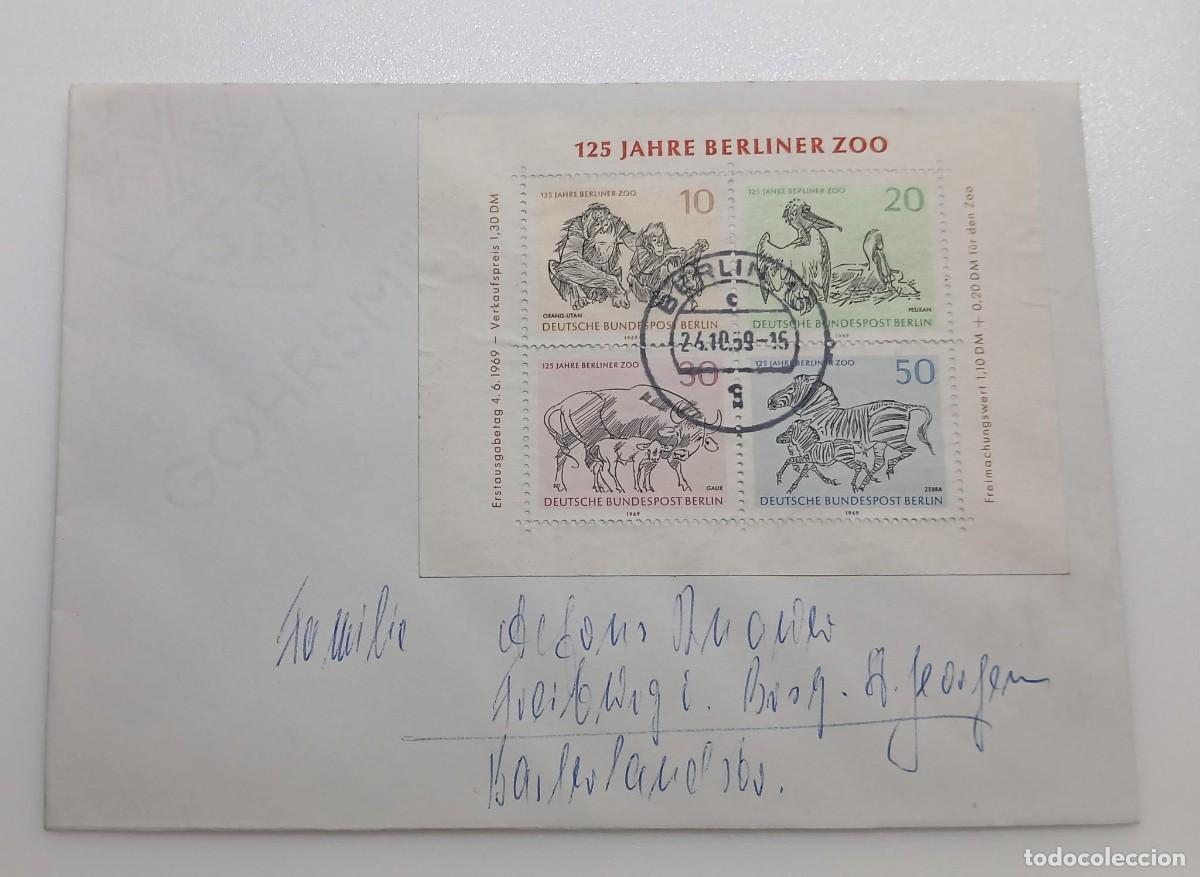 125 JAHRE BERLINER ZOO
Erstausgabetag 4. 6. 1969 – Verkaufspreis 1,30 DM
125 JAHRE BERLINER ZOO 10
ORANG-UTAN
DEUTSCHE BUNDESPOST BERLIN
1969
125 JAHRE BERLINER ZOO 20
PELIKAN
DEUTSCHE BUNDESPOST BERLIN
1969
125 JAHRE BERLINER ZOO 30
GAUR
DEUTSCHE BUNDESPOST BERLIN
1969
125 JAHRE BERLINER ZOO 50
ZEBRA
DEUTSCHE BUNDESPOST BERLIN
1969
Freimachungswert 1,10 DM + 0,20 DM für den Zoo
BERLIN
c
24.10.69-16
Familie Alfons
Freiburg i. Brsg. St. Georgen
todocoleccion